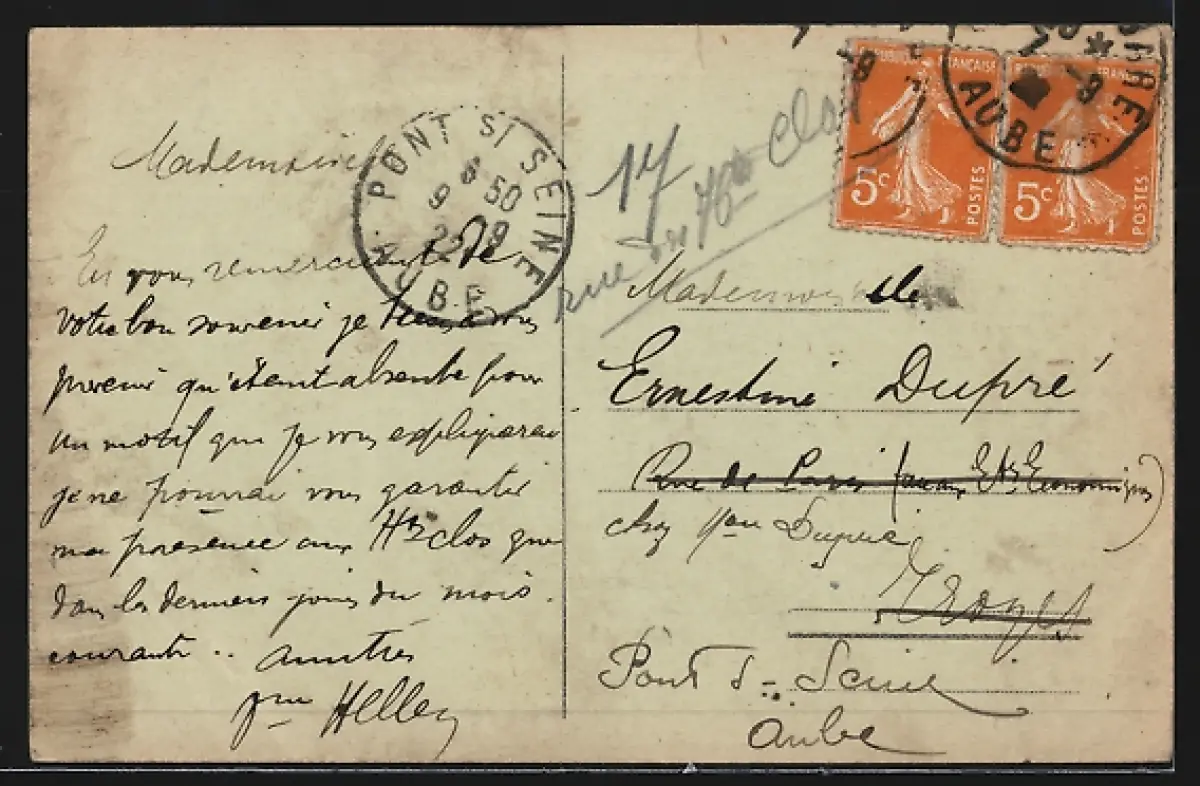 Mademoiselle
En vous remerciant de
votre bon souvenir je tiens à vous
prevenir qu'étant absente pour
un motif que je vous expliquerai
je ne pourrai vous garantir
ma presence aux Hts clos que
dans les derniers jours du mois.
courant .. amitiés
Helley
PONT S/ SEINE
50
AUBE
17
rue des Hts Clos
RÉPUBLIQUE FRANÇAISE
5c
POSTES
RÉPUBLIQUE FRANÇAISE
5c
POSTES
AUBE
Mademoiselle
Ernestine Dupré
Rue de Paris (aux Ets Economiques)
chez Dupré
Troyes
Pont s- Seine
Aube